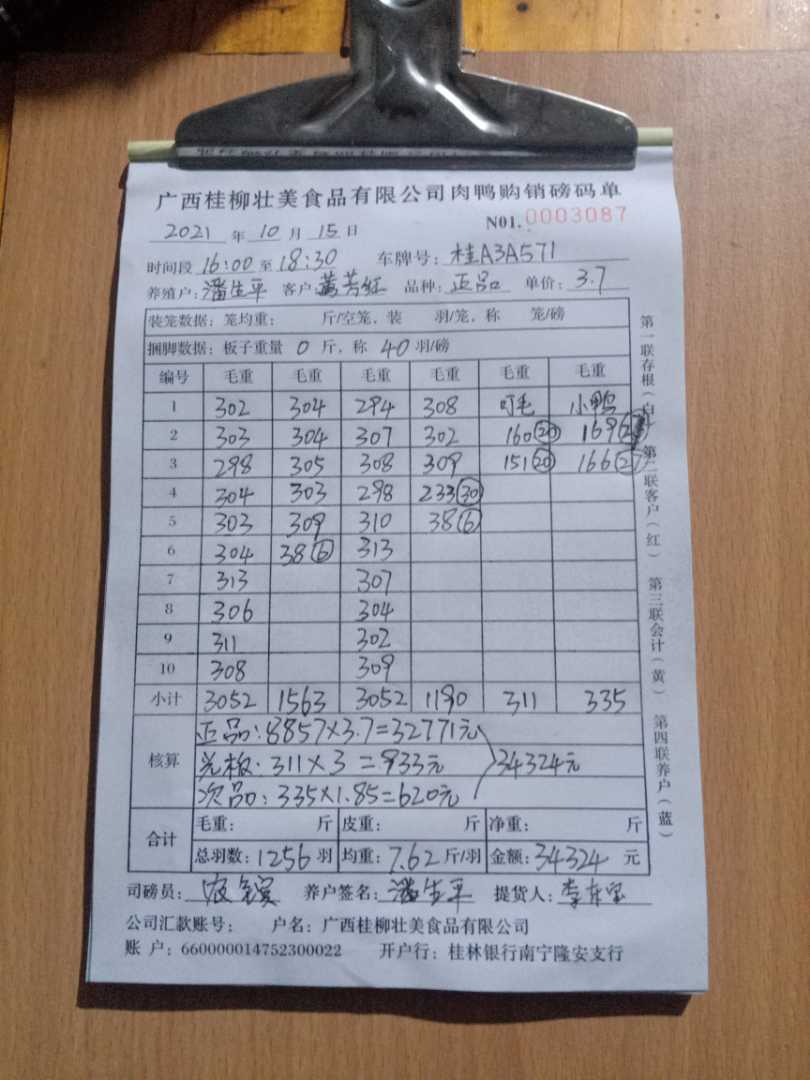 广西桂柳壮美食品有限公司肉鸭购销磅码单
2021 年 10 月 15 日 N01. 0003087
时间段 16:00 至 18:30 车牌号: 桂A3A571
养殖户: 潘生平 客户: 黄芳红 品种: 正品 单价: 3.7
装笼数据: 笼均重: 斤/空笼, 装 羽/笼, 称 笼/磅
捆脚数据: 板子重量 0 斤, 称 40 羽/磅
编号 毛重 毛重 毛重 毛重 毛重 毛重
1 302 304 294 308 叮毛 小鸭
2 303 304 307 302 160(20) 169
3 298 305 308 309 151(20) 166(27)
4 304 303 298 233(30)
5 303 309 310 38(6)
6 304 38(6) 313
7 313 307
8 306 304
9 311 302
10 308 309
小计 3052 1563 3052 1190 311 335
核算
正品: 8857×3.7=32771元
光板: 311×3=933元 34324元
次品: 335×1.85=620元
合计
毛重: 斤 皮重: 斤 净重: 斤
总羽数: 1256 羽 均重: 7.62 斤/羽 金额: 34324 元
司磅员: 养户签名: 潘生平 提货人:
公司汇款账号: 户名: 广西桂柳壮美食品有限公司
账 户: 660000014752300022 开户行: 桂林银行南宁隆安支行
第一联存根(白) 第二联客户(红) 第三联会计(黄) 第四联养户(蓝)